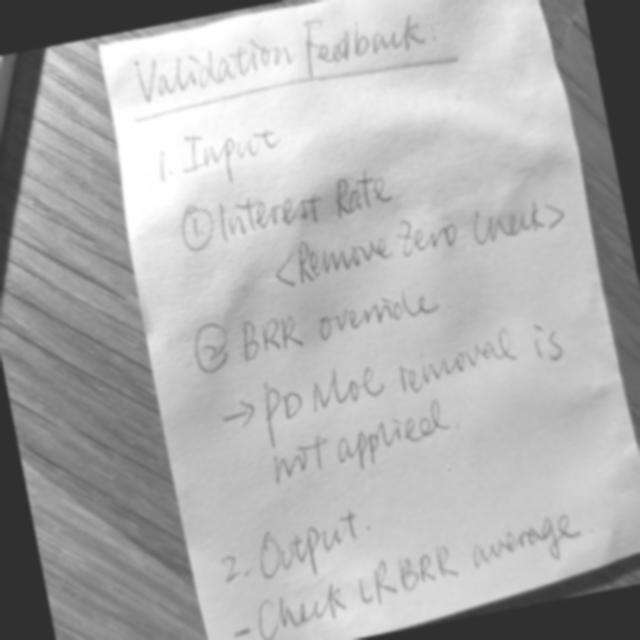 Validation Feedback:
1. Input
① Interest Rate
<Remove Zero Check>
② BRR override
→ PD MoC removal is
not applied.
2. Output.
- Check LRBRR average.